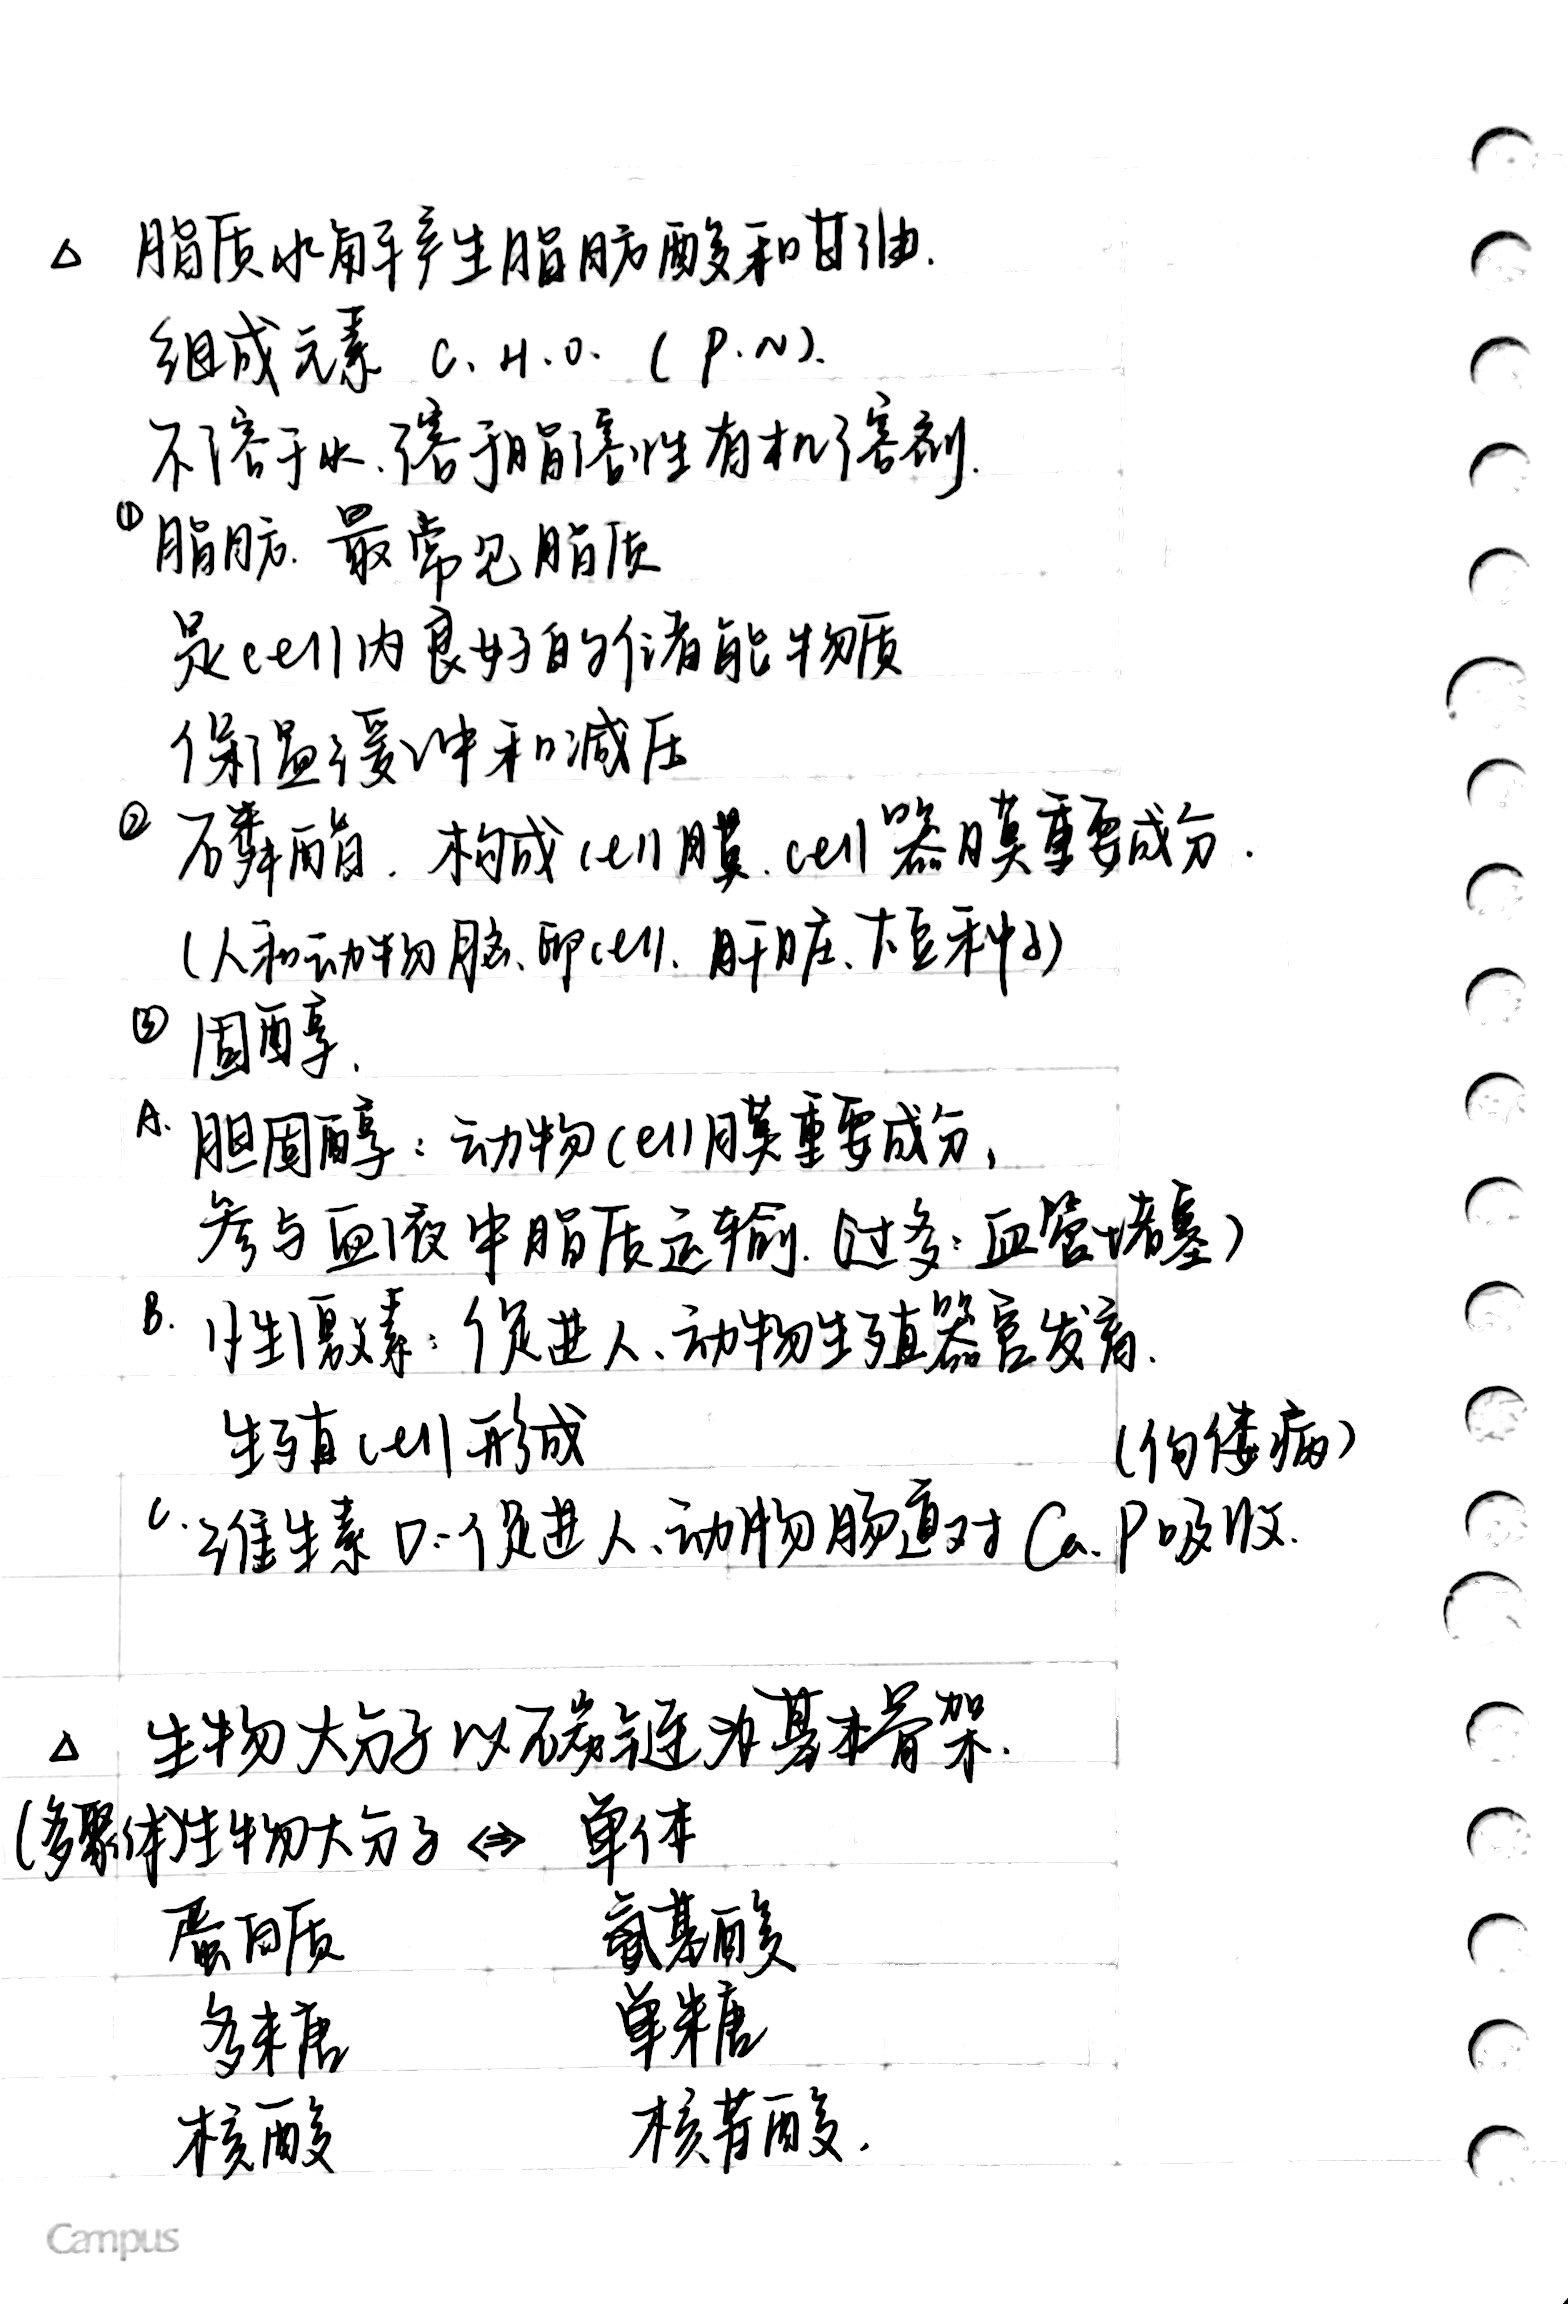 △ 脂质水解产生脂肪酸和甘油.
组成元素 C.H.O. (P.N).
不溶于水、溶于脂溶性有机溶剂.
① 脂肪. 最常见脂质
是cell内良好的储能物质
保温缓冲和减压
② 磷酯. 构成cell膜.cell器膜重要成分.
(人和动物脑、卵cell、肝脏、大豆种子)
③ 固醇.
A. 胆固醇:动物cell膜重要成分,
参与血液中脂质运输.(过多:血管堵塞)
B. 性激素:促进人、动物生殖器官发育.
生殖cell形成
(佝偻病)
C. 维生素D:促进人、动物肠道对Ca.P吸收.
△ 生物大分子以碳链为基本骨架.
(多聚体)生物大分子 ⇔ 单体
蛋白质 氨基酸
多糖 单糖
核酸 核苷酸.
Campus